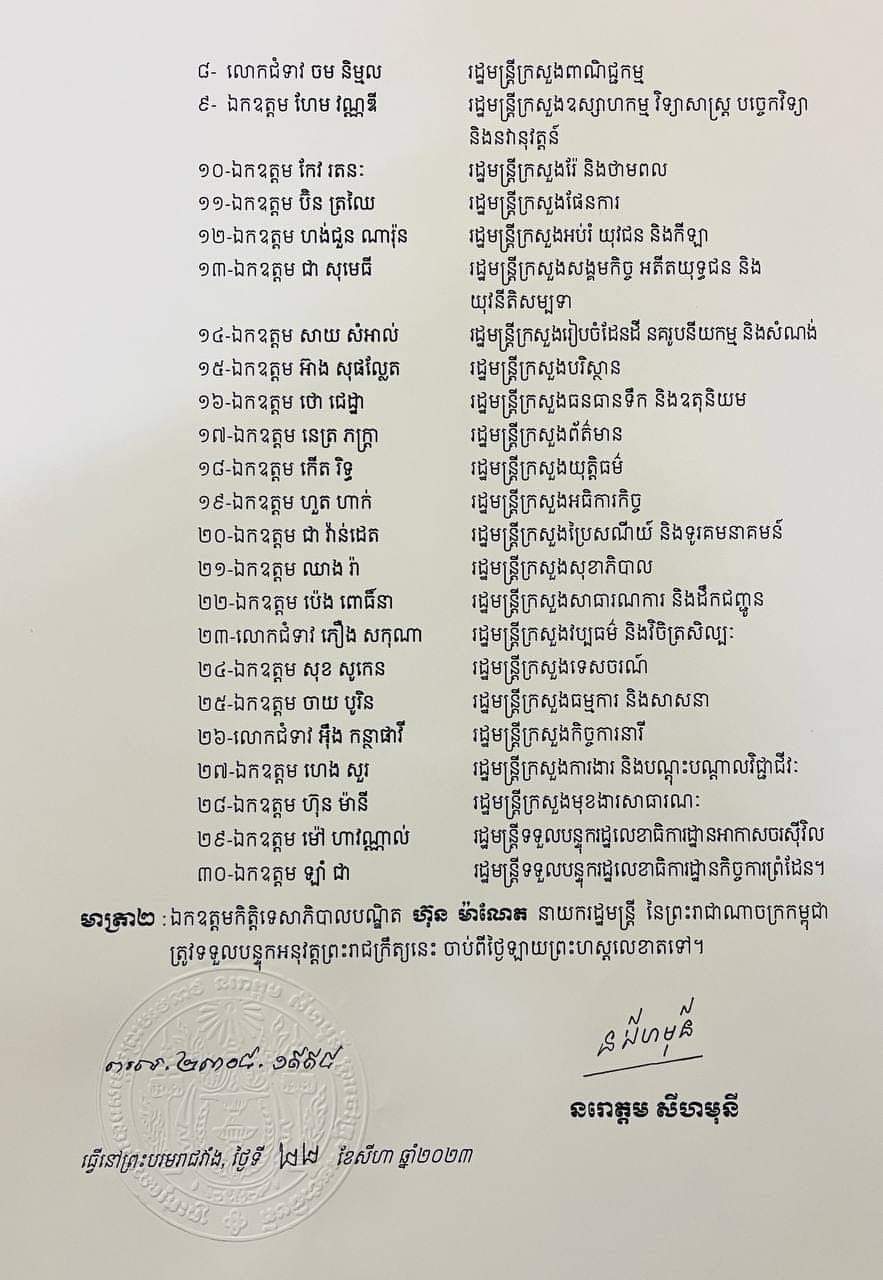 ៨- លោកជំទាវ ចម និម្មល រដ្ឋមន្ត្រីក្រសួងពាណិជ្ជកម្ម
៩- ឯកឧត្តម ហែម វណ្ណឌី រដ្ឋមន្ត្រីក្រសួងឧស្សាហកម្ម វិទ្យាសាស្ត្រ បច្ចេកវិទ្យា
និងនវានុវត្តន៍
១០-ឯកឧត្តម កែវ រតនៈ រដ្ឋមន្ត្រីក្រសួងរ៉ែ និងថាមពល
១១-ឯកឧត្តម ប៊ិន ត្រឈៃ រដ្ឋមន្ត្រីក្រសួងផែនការ
១២-ឯកឧត្តម ហង់ជួន ណារ៉ុន រដ្ឋមន្ត្រីក្រសួងអប់រំ យុវជន និងកីឡា
១៣-ឯកឧត្តម ជា សុមេធី រដ្ឋមន្ត្រីក្រសួងសង្គមកិច្ច អតីតយុទ្ធជន និង
យុវនីតិសម្បទា
១៤-ឯកឧត្តម សាយ សំអាល់ រដ្ឋមន្ត្រីក្រសួងរៀបចំដែនដី នគរូបនីយកម្ម និងសំណង់
១៥-ឯកឧត្តម អ៊ាង សុផល្លែត រដ្ឋមន្ត្រីក្រសួងបរិស្ថាន
១៦-ឯកឧត្តម ថោ ជេដ្ឋា រដ្ឋមន្ត្រីក្រសួងធនធានទឹក និងឧតុនិយម
១៧-ឯកឧត្តម នេត្រ ភក្ត្រា រដ្ឋមន្ត្រីក្រសួងព័ត៌មាន
១៨-ឯកឧត្តម កើត រិទ្ធ រដ្ឋមន្ត្រីក្រសួងយុត្តិធម៌
១៩-ឯកឧត្តម ហួត ហាក់ រដ្ឋមន្ត្រីក្រសួងអធិការកិច្ច
២០-ឯកឧត្តម ជា វ៉ាន់ដេត រដ្ឋមន្ត្រីក្រសួងប្រៃសណីយ៍ និងទូរគមនាគមន៍
២១-ឯកឧត្តម ឈាង រ៉ា រដ្ឋមន្ត្រីក្រសួងសុខាភិបាល
២២-ឯកឧត្តម ប៉េង ពោធិ៍នា រដ្ឋមន្ត្រីក្រសួងសាធារណការ និងដឹកជញ្ជូន
២៣-លោកជំទាវ ភឿង សកុណា រដ្ឋមន្ត្រីក្រសួងវប្បធម៌ និងវិចិត្រសិល្បៈ
២៤-ឯកឧត្តម សុខ សូកេន រដ្ឋមន្ត្រីក្រសួងទេសចរណ៍
២៥-ឯកឧត្តម ចាយ បូរិន រដ្ឋមន្ត្រីក្រសួងធម្មការ និងសាសនា
២៦-លោកជំទាវ អុឹង កន្ថាផាវី រដ្ឋមន្ត្រីក្រសួងកិច្ចការនារី
២៧-ឯកឧត្តម ហេង សួរ រដ្ឋមន្ត្រីក្រសួងការងារ និងបណ្តុះបណ្តាលវិជ្ជាជីវៈ
២៨-ឯកឧត្តម ហ៊ុន ម៉ានី រដ្ឋមន្ត្រីក្រសួងមុខងារសាធារណៈ
២៩-ឯកឧត្តម ម៉ៅ ហាវណ្ណាល់ រដ្ឋមន្ត្រីទទួលបន្ទុករដ្ឋលេខាធិការដ្ឋានអាកាសចរស៊ីវិល
៣០-ឯកឧត្តម ឡាំ ជា រដ្ឋមន្ត្រីទទួលបន្ទុករដ្ឋលេខាធិការដ្ឋានកិច្ចការព្រំដែន។
មាត្រា២ : ឯកឧត្តមកិត្តិទេសាភិបាលបណ្ឌិត ហ៊ុន ម៉ាណែត នាយករដ្ឋមន្ត្រី នៃព្រះរាជាណាចក្រកម្ពុជា
ត្រូវទទួលបន្ទុកអនុវត្តព្រះរាជក្រឹត្យនេះ ចាប់ពីថ្ងៃឡាយព្រះហស្តលេខាតទៅ។
នរោត្តម សីហមុនី
ធ្វើនៅព្រះបរមរាជវាំង, ថ្ងៃទី ២២ ខែសីហា ឆ្នាំ២០២៣